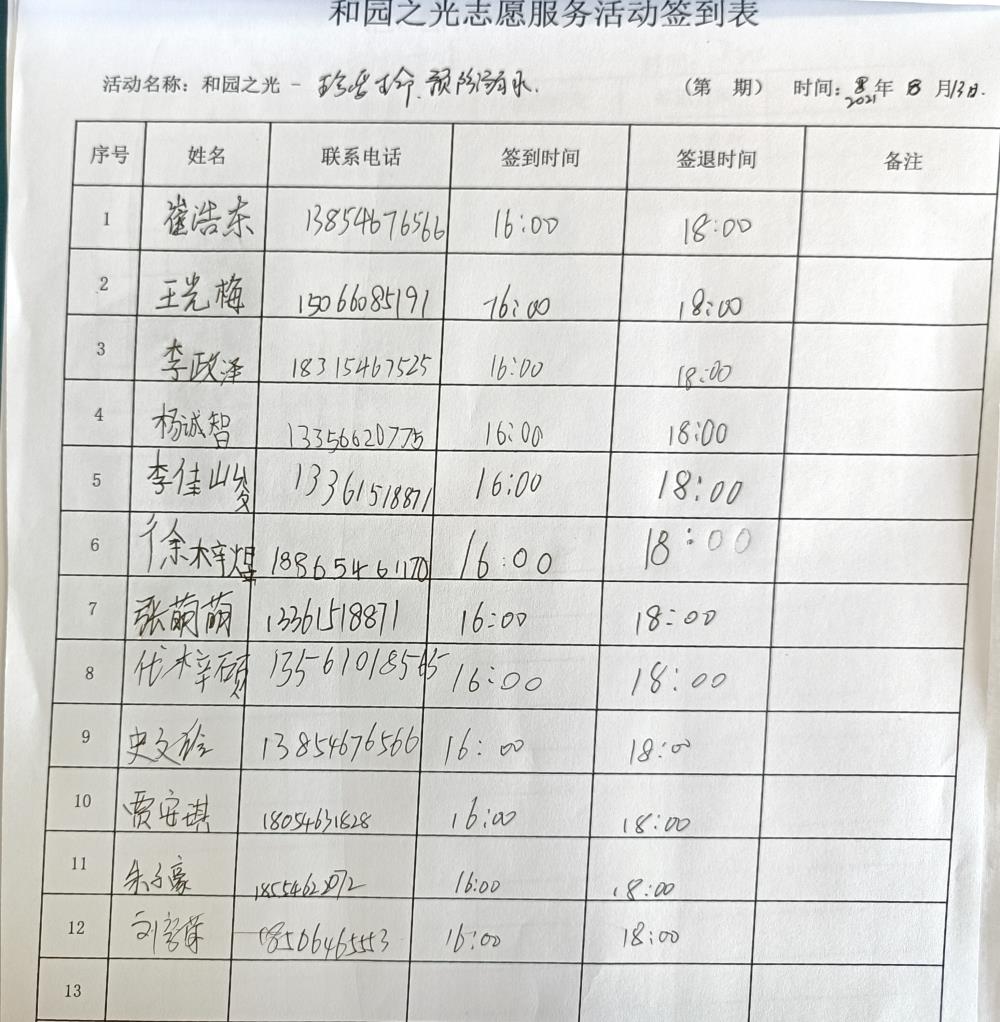 和园之光志愿服务活动签到表
活动名称：和园之光 - 珍爱生命.预防溺水. （第 期） 时间：2021年 8 月13日.
序号 姓名 联系电话 签到时间 签退时间 备注
1 崔浩东 13854676566 16:00 18:00
2 王光梅 15066085191 16:00 18:00
3 李政泽 18315467525 16:00 18:00
4 杨诚智 13356620775 16:00 18:00
5 李佳 13361518871 16:00 18:00
6 徐梓煜 18865461170 16:00 18:00
7 张萌萌 13361518871 16:00 18:00
8 代梓硕 13561018565 16:00 18:00
9 史文 13854676566 16:00 18:00
10 贾安琪 18054631828 16:00 18:00
11 朱子豪 1855462072 16:00 18:00
12 刘 18506465553 16:00 18:00
13